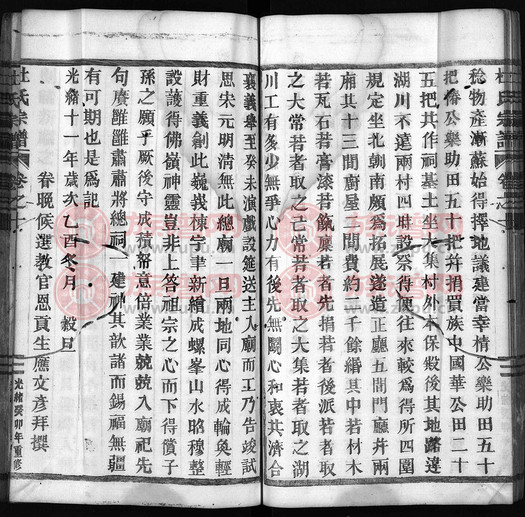 杜氏宗譜
卷之
稔物產漸蘇始得擇地議建當幸情公樂助田五十
把椿公樂助田五十把幷捐買族中國華公田二十
五把共作祠基土坐大集村外本保殿後其地路達
湖川不遠兩村四時設祭得便往來較爲得所四圍
規定坐北朝南頗爲拓展遂造正廳五間門廳幷兩
廂其十三間廚屋一間費約二千餘緡其中若材木
若瓦石若膏漆若餼廩若者先捐若者後派若者取
之大常若者取之己常若者取之大集若者取之湖
川工有多少無爭心力有後先無鬭心和衷共濟合
襄義舉至癸未演戲設筵送主入廟而工乃告竣試
思宋元明清無此總廟一旦兩地同心得成輪奐輕
財重義創此巍峩棟宇聿新繪成螺峯山水昭穆整
設護得佛嶺神靈豈非上答祖宗之心而下得償子
孫之願乎厥後守成積累意倍業業兢兢入廟祀先
句賡雝雝肅肅將總祠一建神其歆諸而錫福無疆
有可期也是爲記
光緒十一年歲次乙酉冬月 穀旦
眷晚候選教官恩貢生應文彥拜撰
杜氏宗譜
卷之十
光緒癸卯年重修